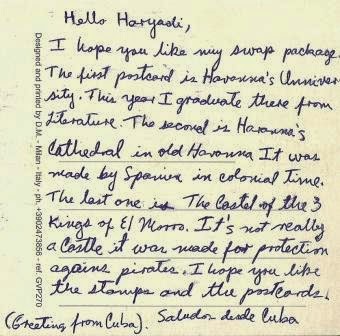 Hello Haryadi,
I hope you like my swap package.
The first postcard is Havanna's Univer
sity. This year I graduate there from
Literature. The second is Havanna's
Cathedral in old Havanna It was
made by Spanien in colonial time.
The last one is The Castel of the 3
Kings of El Morro. It's not really
a Castle it was made for protection
agains pirates. I hope you like
the stamps and the postcards.
(Greeting from Cuba). Saludos desde Cuba
Designed and printed by D.M. - Milan - Italy - ph. +3902473856 - ref. GVP270